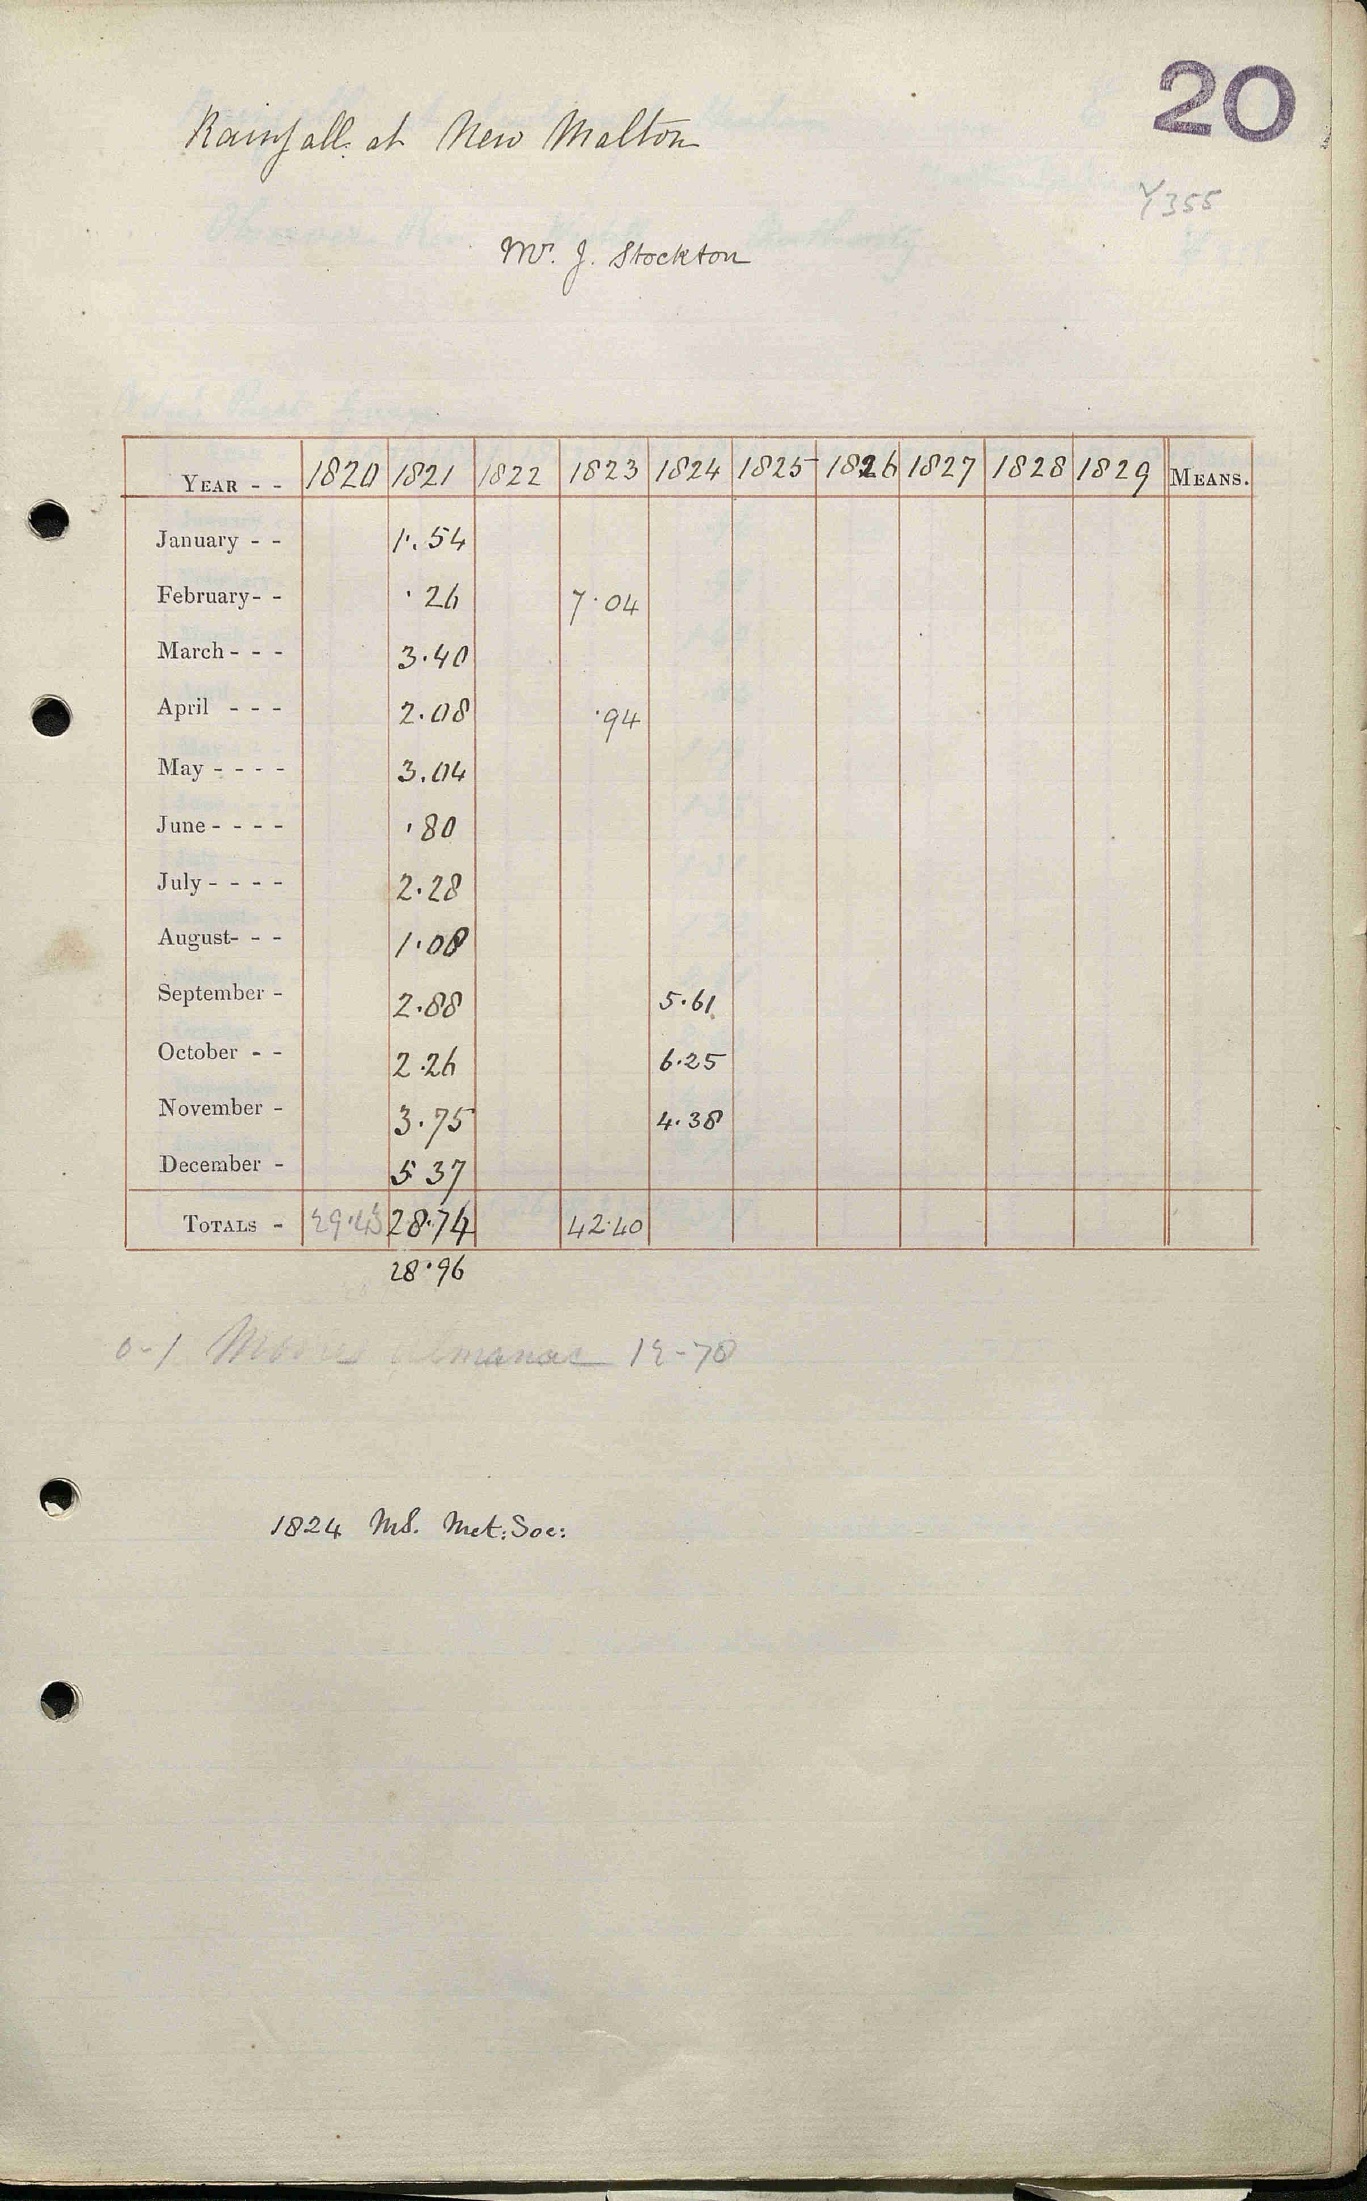 20
Rainfall at New Malton
Y355
Mr. J. Stockton
YEAR - - 1820 1821 1822 1823 1824 1825 1826 1827 1828 1829 MEANS.
January - - 1.54
February - - .26 7.04
March - - - 3.40
April - - - 2.08 .94
May - - - - 3.04
June - - - - .80
July - - - - 2.28
August - - - 1.08
September - 2.88 5.61
October - - 2.26 6.25
November - 3.75 4.38
December - 5 37
TOTALS - 29.43 28.74 42.40
28.96
Moores almanac
1824 MS. Met: Soc: